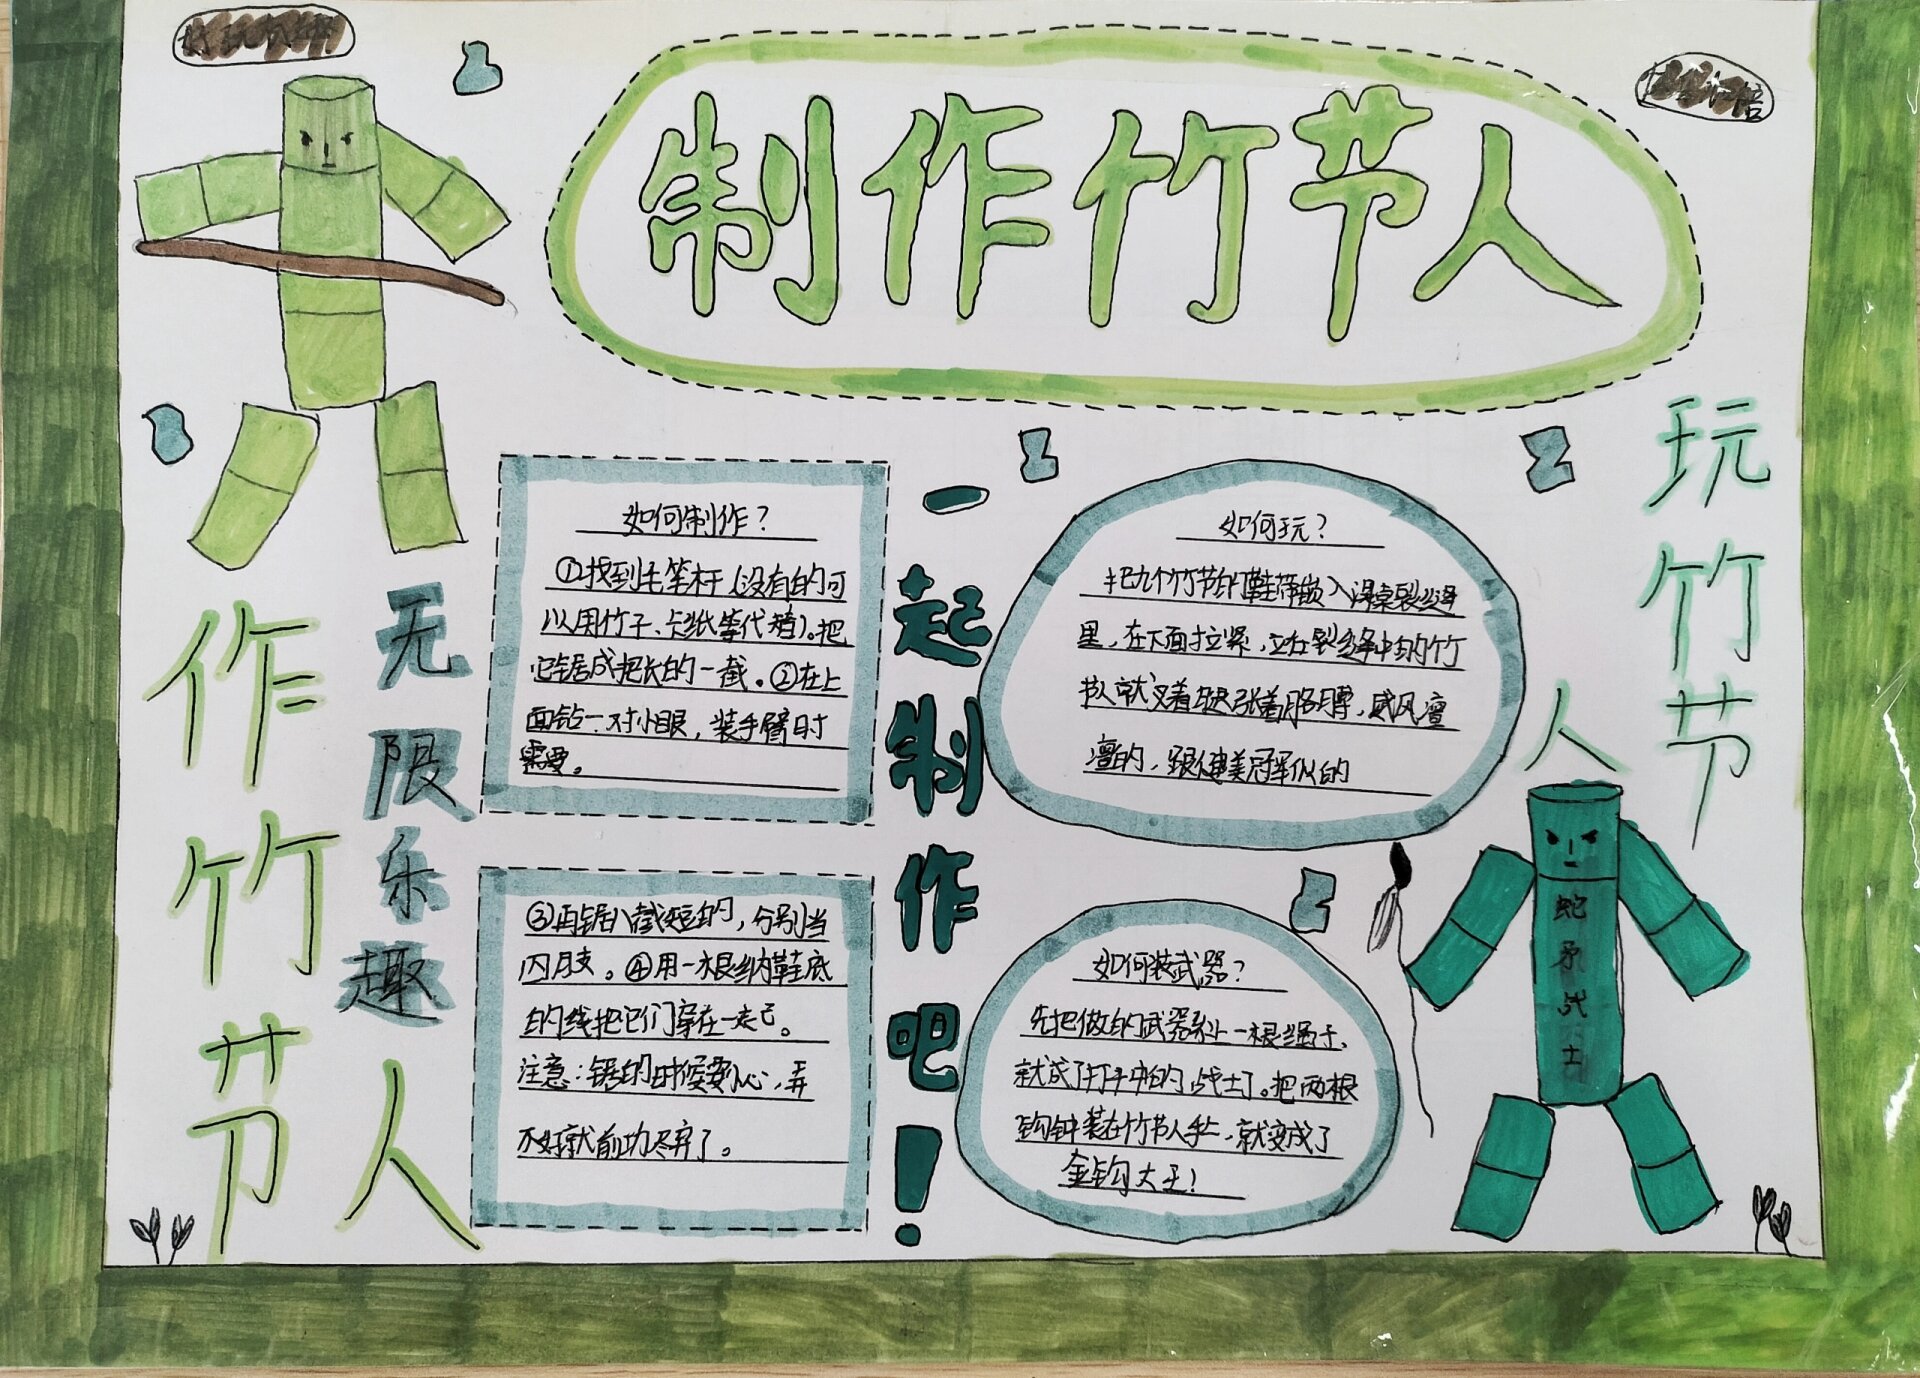 制作竹节人
作竹节人
无限乐趣
如何制作？
①找到毛笔杆（没有的可
以用竹子、卡纸等代替）。把
它锯成把长的一截。②在上
面钻一对小眼，装手臂时
需要。
③再锯八截短的，分别当
四肢。④用一根纳鞋底
的线把它们穿在一起。
注意：锯的时候要小心，弄
不好就前功尽弃了。
一起制作吧！
如何玩？
把九个竹节的鞋带嵌入课桌裂缝
里，在下面拉紧，立在裂缝中的竹
节人就叉着腿张着胳膊，威风凛
凛的，跟健美冠军似的
如何装武器？
先把做的武器系上一根
就成了手中的战士了。把两根
钩钟装在竹节人手上，就变成了
金钩大王！
玩竹节
人
蛇矛战士